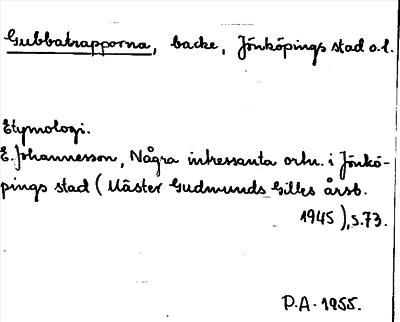 Gubbatrapporna, backe, Jönköpings stad o.l.
Etymologi.
E. Johannesson, Några intressanta ortn. i Jönkö-
pings stad (Mäster Gudmunds Gilles årsb.
1945), s. 73.
P.A. 1955.